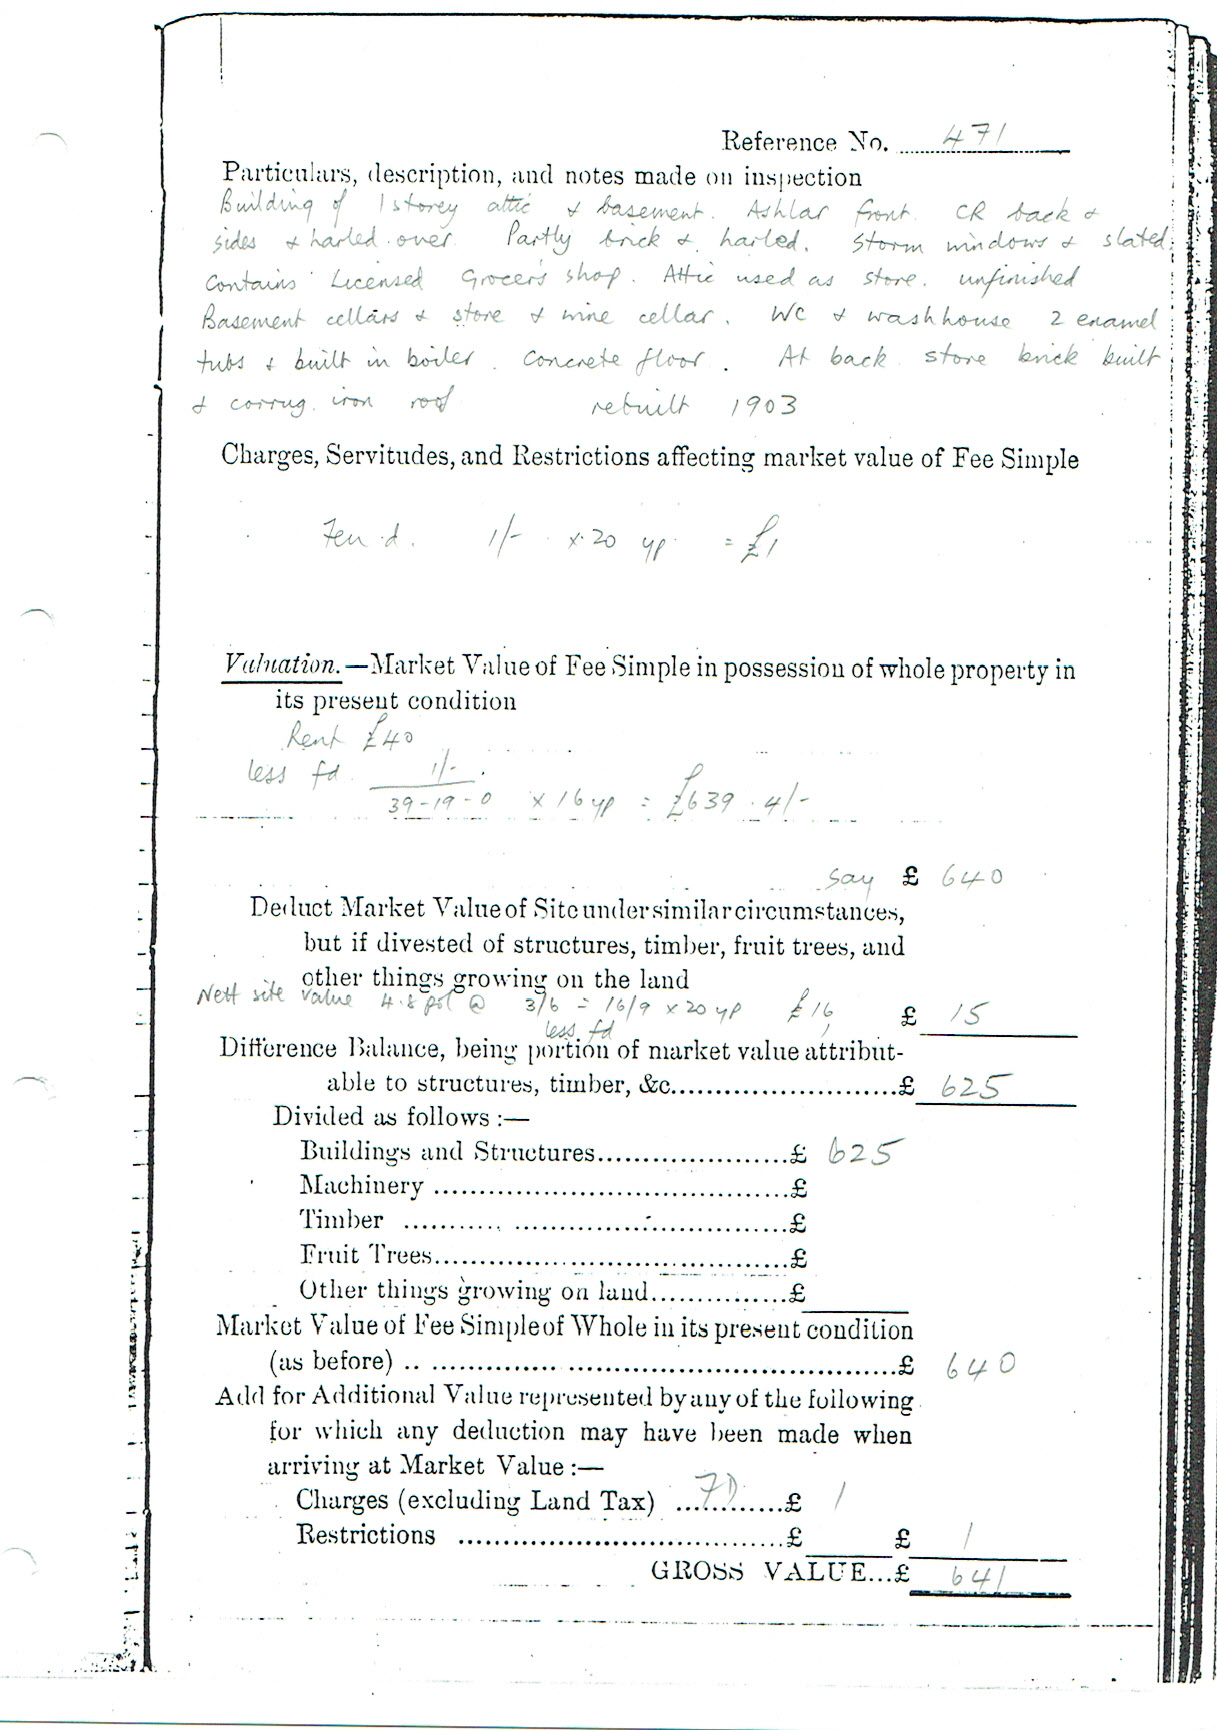 Reference No. 471
Particulars, description, and notes made on inspection
Building of 1 storey attic & basement. Ashlar front. CR back &
sides & harled over. Partly brick & harled. Storm windows & slated.
Contains Licensed Grocer's shop. Attic used as store. unfinished
Basement cellars & store & wine cellar. WC & washhouse 2 enamel
tubs & built in boiler. Concrete floor. At back store brick built
& corrug. iron roof rebuilt 1903
Charges, Servitudes, and Restrictions affecting market value of Fee Simple
Feu d. 1/- x 20 yp = £1
Valuation.—Market Value of Fee Simple in possession of whole property in
its present condition
Rent £40
less fd. 1/-
39-19-0 x 16 yp = £639.4/-
say £ 640
Deduct Market Value of Site under similar circumstances,
but if divested of structures, timber, fruit trees, and
other things growing on the land
Nett site value 4.8 pol @ 3/6 = 16/9 x 20 yp £16
less fd 1
£ 15
Difference Balance, being portion of market value attribut-
able to structures, timber, &c. £ 625
Divided as follows :—
Buildings and Structures £ 625
Machinery £
Timber £
Fruit Trees £
Other things growing on land £
Market Value of Fee Simple of Whole in its present condition
(as before) £ 640
Add for Additional Value represented by any of the following
for which any deduction may have been made when
arriving at Market Value :—
Charges (excluding Land Tax) FD £ 1
Restrictions £ £ 1
GROSS VALUE...£ 641